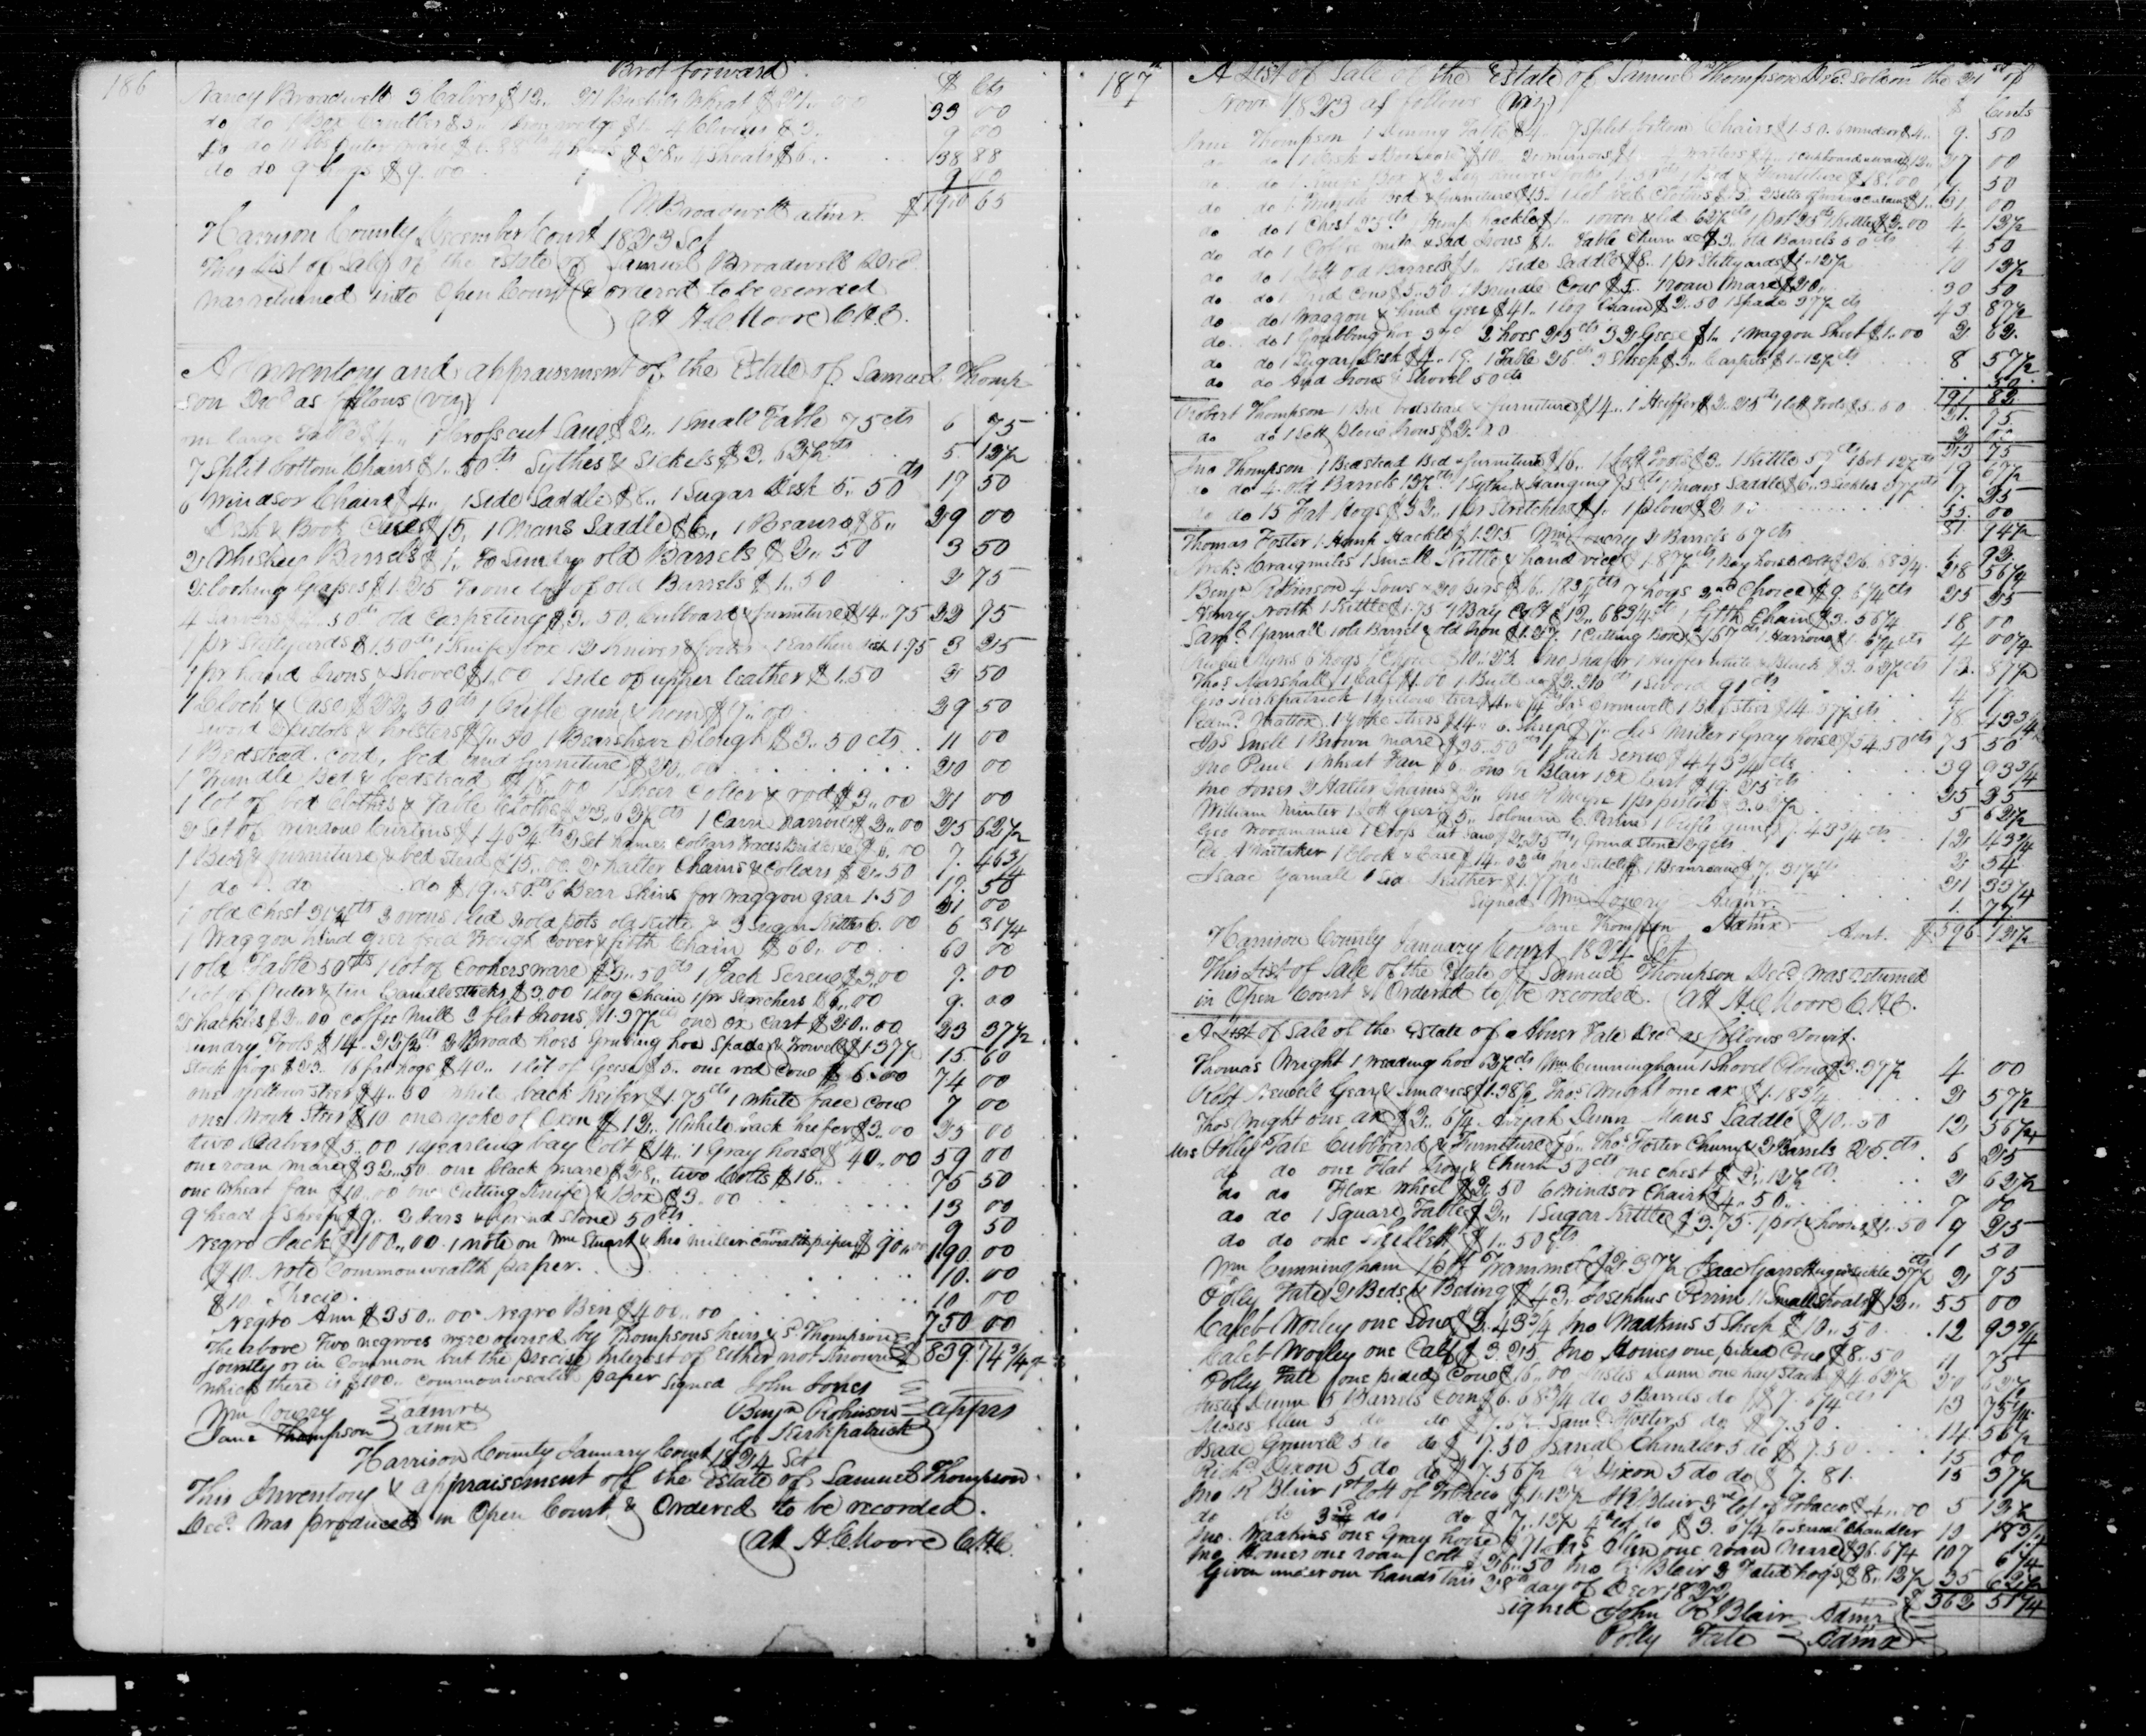 186
Brot forward
$ Cts
Nancy Broadwell 3 Calves $12,, 21 Bushels Wheat $21,, 00 33 00
do do 1 Box Candles $5,, 1 Iron wedge $1,, 4 Clevises $3. 9 00
do do $6.88 cts $28,, 4 Shoats $6,, 38 88
do do 9 hogs $9.00 9 00
M Broadwell admr. $190 65
Harrison County December Court 1823 Sct
This List of Sales of the Estate of Samuel Broadwell Decd
was returned into Open Court & ordered to be recorded
att H. C Moore C.H.C.
A Inventory and appraisement of the Estate of Samuel Thomp
son Decd as follows (viz)
one large Table $4,, 1 Cross cut Saw $2,, 1 Small Table 75 cts 6 75
7 Split bottom Chairs $1.50 cts Sythes & Sickels $3.63½ cts 5. 13½
6 Windsor Chairs $4,, 1 Side Saddle $8,, 1 Sugar Desk 5,, 50 cts 17 50
Desk & Book Case $15, 1 Mans Saddle $6,, 1 Beauro $8,, 29 00
2 Whiskey Barrels $1,, To Sundry old Barrels $2,, 50 3 50
2 looking Glasses $1.25 To one lot of old Barrels $1,, 50 2 75
4 Sarvers $4.. 50 cts old Carpeting $3,, 50, Cubboard & furniture $14,, 75 22 75
1 pr Stillyards $1.50 cts 1 Knife box 12 Knives & forks 1 Earthen dish 1.75 3 25
1 pr hand Irons & Shovel $1,,00 1 Side of upper leather $1..50 2 50
1 Clock & Case $32,, 50 cts 1 Rifle gun & horn $7,, 00 39 50
Sword & pistols & holsters $7,, 50 1 Bearshear Plough $3,, 50 cts 11 00
1 Bedstead. cord, bed and furniture $20,, 00 20 00
1 Trundle Bed & bedstead $16,, 00 1 Shear Colter & rod $3,, 00 21 00
1 lot of bed Clothes & Table Cloths $23,, 62½ cts 2,, 00 25 62½
2 Set of window Curtins $1.46¾ cts 2 Set hames Collars Traces Bridles &c $6,, 00 7. 46¾
1 Bed & furniture & bed stead $15,, 00. 2 halter Chains & Collars $2,, 50 17. 50
1 do do do $19,, 50 cts 6 Bear Skins for waggon gear 1.50 21 00
1 old Chest 31¼ cts 3 ovens 1 lid 2 old pots old Kittle & 3 Sugar Kittles 6.. 00 6 31¼
1 Waggon hind geer feed Trough Cover & fifth Chain $60,, 00 60 00
1 old Table 50 cts 1 lot of Cookersware $5,, 50 cts 1 Jack Screw $3,, 00 9. 00
1 lot of Puter & tin Candlesticks $3.00 1 log Chain 1 pr Strechers $6,, 00 9. 00
2 hackles $2,, 00 Coffee Mill 2 flat Irons $1.37½ cts one Ox Cart $20,, 00 23 37½
Sundry Tools $14.. 23 cts 2 Broad hoes Grubing hoe Spade & Trowel $1.37½ 15 60
Stock hogs $23.. 16 fat hogs $40.. 1 lot of Geese $5.. one red Cow $6.00 74 00
one yellow steer $4..50 white back heifer $1.75 cts 1 white face cow 7 00
one work Steer $10 one yoke of Oxen $12,, 1 White back heifer $3,, 00 25 00
two Calves $5..00 1 yearling bay Colt $14,, 1 Gray horse $40..00 59 00
one roan mare $32..50 one black mare $28,, two Colts $15.. 75 50
one wheat fan $10..00 one Cutting Knife & Box $3..00 13 00
9 head of Sheep $9.. 2 bars & Grind stone 50 cts 9 50
Negro Jack $100..00 . 1 note on Wm Stuart & Jno Miller Comwealth paper $90..00 190. 00
$10. Note Commonwealth paper. 10. 00
$10 Specie. 10 00
Negro Ann $350..00. Negro Ben $400..00 750 00
The above two negroes were owned by Thompsons heirs & S. Thompson $839.74¾
jointly or in Common but the precise interest of either not known
which there is $100,, commonwealth paper Signed John Jones
Wm Lowry admr Benjn Robinson apprs
Jane Thompson admx G. Kirkpatrick
Harrison County January Court 1824 Sct
This Inventory & appraisement off the Estate of Samuel Thompson
Decd. was produced in Open Court & Ordered to be recorded.
att H. C Moore C.H.C.
187
A List of Sale of the Estate of Samuel Thompson Decd. sold on the 21st of
Novr 1823 as follows (viz)
$ Cents
Jane Thompson 1 Dining Table $4.. 7 Split bottom Chairs $1.50. 6 windsor $4.. 9. 50
do do 1 Desk & Bookcase $10.. 2 mirrors 4 waiters $4.. 1 cubboard & ware $12.. 27 00
do do 1 Knife Box 1 Bed & Furniture $18.00 19. 50
do do 1 Bed & furniture $15.. 1 lot bed Clothes 31 00
do do 1 Chest 25 cts 1 hemp hackle $1.. 1 oven & lid 62½ cts 1 pot 25 cts Kittles $2.00 4. 12½
do do 1 Coffee mill & Sad Irons $1.. Table Churn old Barrels 50 cts 4. 50
do do 1 Lott old Barrels $1.. 1 Side Saddle $8.. 1 pr Stillyards $1.12½ 10 12½
do do 1 Red Cow $5..50 1 Brindle Cow $5.. 1 roan Mare $20. 30 50
do do 1 Waggon & hind geer $41.. 1 log Chain $2..50 1 Spade 37½ cts 43 87½
do do 1 Grubbing hoe 2 hoes 25 cts 32 Geese $1.. 1 Waggon Sheet $1..00 2 62.
do do 1 Sugar Desk 1 Table 26 cts 3 Sheep $3.. Carpets $1.12½ cts 8 57½
do do And Irons & Shovel 50 cts 50.
191 82.
Robert Thompson 1 Bed bedstead & furniture $14.. 1 Heiffer $2..25 cts 1 lott Tools $5..50 21. 75
do do 1 Sett plow Irons $2.. 00 2 00
23 75
Jno Thompson 1 Bedstead Bed & furniture $16.. 1 lott Tools $3.. 1 Kittle 19 67½
do do 4 old Barrels 1 Sythe & Hanging 75 cts 1 mans Saddle $6.. 3 Sickles 37½ cts 7. 25
do do 15 Fat Hogs $32.. 1 pr Stretchers $1. 1 plow $2 00 55. 00
81 94½
Thomas Foster 1 Hemp Hackle $1.25 Wm Lowry 2 Barrels 67 cts 1. 92
Archd. Craigmiles 1 Small Kittle & hand vice $1.87½ cts 1 Bay horse Colt $26.68¾ 28 56¼
Benjn Robinson 4 Sows & 20 pigs $16.18¾ cts 7 hogs 2nd Choice $9.6¼ cts 25 25
Henry North 1 Kittle $1.75 1 Bay Colt $12.68¾ cts 1 fifth Chain $3.56¼ 18 00
Saml. Yarnall 1 old Barrel & old Iron 1 Cutting Box 1 Harrow 4 00¼
6 hogs 1 Choice $10.25 Jno Shafer 1 Heiffer white & Black $2.62½ cts 12. 87½
Thos Marshall 1 Calf $1.00 1 Bull 1 Sword 91 cts 4 17.
Geo Kirkpatrick 1 yellow steer Cromwell 18 13¾
Mattox 1 yoke steers $14.. 6 Sheep $7.. Miller 1 Gray horse $54.50 cts 75 50
Jos Snell 1 Brown mare $35..50 cts 1 Jack Screw $4 43¾ cts 39 93¾
Jno Paul 1 wheat Fan $6 Jno R Blair 1 Ox Cart $19. 25 cts 25 25
Jno Jones 2 Halter Chains $2.. 1 pr pistols 5 62½
William Minter 1 lott Geer $5.. Solomon C. Perrine 1 Rifle gun $7.43¾ cts 12 43¾
Geo Woodmansee 1 Cross Cut Saw $2.25 cts 1 Grind stone 29 cts 2 54
Whitaker 1 Clock & Case $14.02 cts Jno Sutcliff 1 Beaureau $7.31¼ cts 21 33¼
Isaac Yarnall 1 Side Leather $1.77 cts 1. 77
Signed Wm Lowry Admr.
Jane Thompson Admx Amt. $596.12½
Harrison County January Court 1824 Sct
This List of Sale of the Estate of Samuel Thompson Decd was returned
in Open Court & Ordered to be recorded. att H. C Moore C.H.C.
A List of Sale of the Estate of Abner Tate Decd as follows Towit.
Thomas Wright 1 weading hoe 62½ cts Wm Cunningham 1 Shovel Plow $3.37½ 4 00
Robt Newell Gear & Sundries $1.38¾ Thos Wright one ax $1.18¾ 2 57½
Thos Wright one ax $2.. 6¼ Azijah Dunn Mans Saddle $10..50 12 56¼
Mrs Polly Tate Cubboard & Furniture $6.. Thos Foster Churn & 2 Barrels 25 cts. 6 25
do do one Flat Iron & Churn 50 cts one Chest $2.. 12½ cts 2 62½
do do Flax Wheel $2 50 6 Windsor Chairs $4..50.. 7 00
do do 1 Square Table $2.. 1 Sugar Kittle $3.75. 1 pot & hooks $1.50 9 25
do do one Skillett $1..50 cts 1 50
Wm Cunningham 1 Trammel $2 37½ Isaac Garrett sickle 37½ cts 2 75
Polly Tate 2 Beds & Beding $43.. Josephus Perrin 11 Small Shoats $12.. 55 00
Caleb Worley one Sow $2.43¾ Jno Wadkins 5 Sheep $10..50 12 93¾
Caleb Worley one Calf $3.25 Jno Homes one pided Cow $8..50 11 75
Polly Tate one pided Cow $16..00 Justis Dunn one hay stack $4 62½ 20 62½
Justis Dunn 5 Barrels Corn $6.68¾ do 5 Barrels do $7.6¼ cts 13 75
Moses Allen 5 do do Saml. Foster 5 do $7.50. 14. 56½
Isaac Gruwell 5 do do $7.50 Chandler 5 do $7.50 15 00
Richd Dixon 5 do do $7.56½ R Dixon 5 do do $7.81. 15 37½
Jno R Blair 1st lott of Tobacco $1.12½ J R Blair 2nd lot of Tobacco $4..00 5 12½
do do 3d do do $7.12½ 4th lot do $3.6¼ to Chandler 10 18¾
Jno. Wadkins one Gray horse Allen one roan Mare $36.6¼ 107 6¼
Jno Homes one roan Colt $26..50 Jno R Blair 3 Fated hogs $8..12½ 35 62½
Given under our hands this 28th day of Decr 1822 $362 51¼
Signed John R Blair Admr
Polly Tate Admx